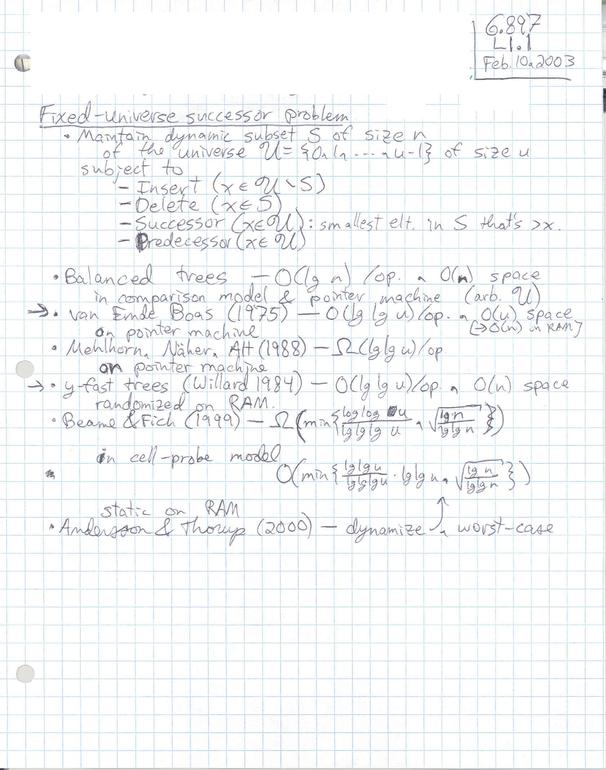 6.897
L1.1
Feb. 10, 2003
Fixed-universe successor problem
• Maintain dynamic subset S of size n
of the universe U = {0, 1, ..., u-1} of size u
subject to
– Insert (x ∈ U \ S)
– Delete (x ∈ S)
– Successor (x ∈ U): smallest elt. in S that's > x.
– Predecessor (x ∈ U)
• Balanced trees — O(lg n) /op., O(n) space
in comparison model & pointer machine (arb. U)
→ • van Emde Boas (1975) — O(lg lg u)/op., O(u) space
on pointer machine [→O(n) on RAM]
• Mehlhorn, Näher, Alt (1988) — Ω(lg lg u)/op
on pointer machine
→ • y-fast trees (Willard 1984) — O(lg lg u)/op., O(n) space
randomized on RAM.
• Beame & Fich (1999) — Ω(min{loglog u / lglglg u, √(lg n / lglg n)})
in cell-probe model
O(min{lglg u / lglglg u · lglg n, √(lg n / lglg n)})
static on RAM
• Andersson & Thorup (2000) — dynamize, worst-case